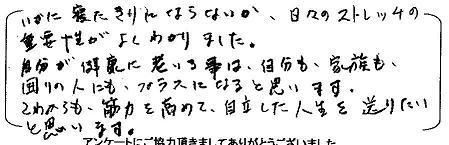 いかに寝たきりにならないか、日々のストレッチの
重要性がよくわかりました。
自分が健康に老いる事は、自分も、家族も、
回りの人にも、プラスになると思います。
これからも、筋力を高めて、自立した人生を送りたい
と思います。
アンケートにご協力頂きましてありがとうございました